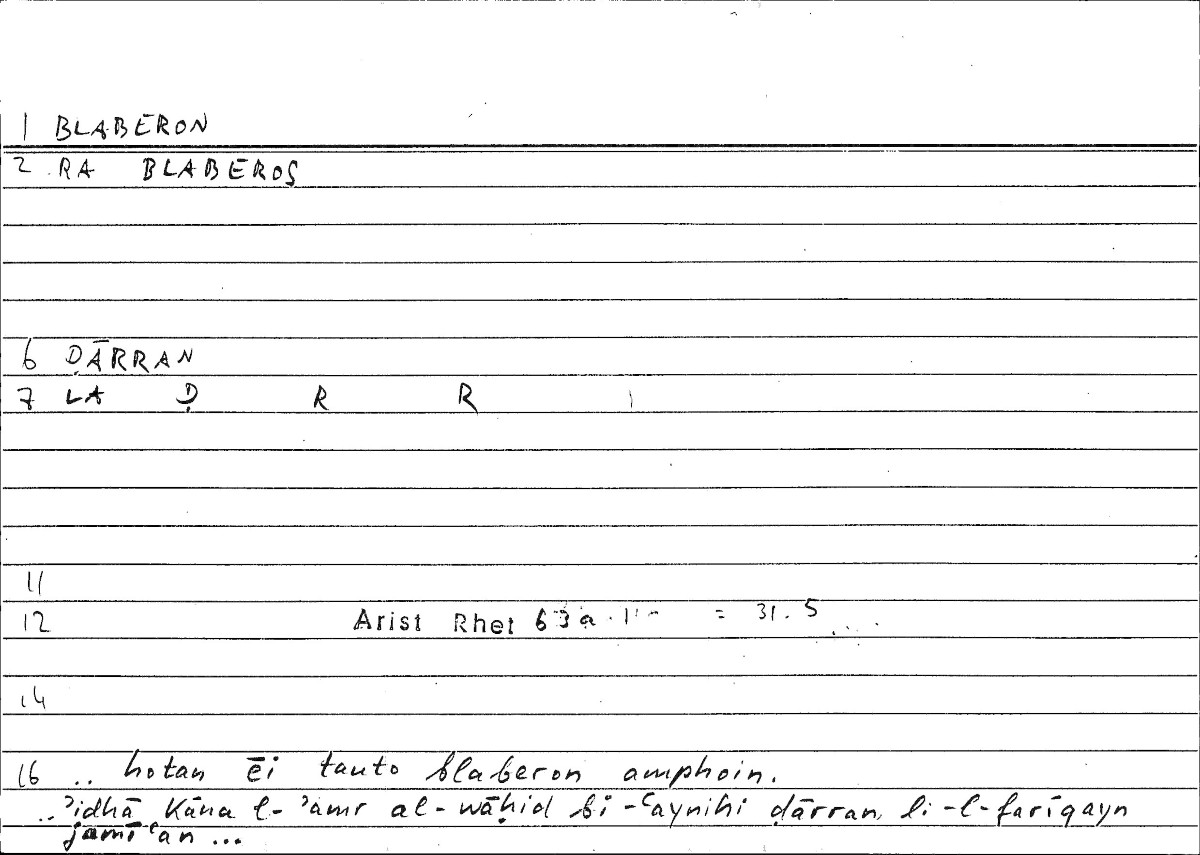 1 BLABERON
2 RA BLABEROS
6 ḌĀRRAN
7 LA Ḍ R R
11
12 Arist Rhet 63a = 31.5
14
16 .. hotan ēi tauto blaberon amphoin.
..ʾidhā kāna l-ʾamr al-wāḥid bi-ʿaynihi ḍārran li-l-farīqayn
jamīʿan ...